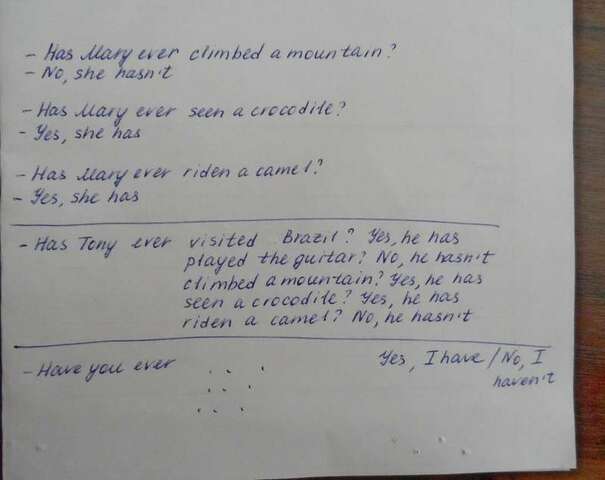 - Has Mary ever climbed a mountain?
- No, she hasn't
- Has Mary ever seen a crocodile?
- Yes, she has
- Has Mary ever riden a camel?
- Yes, she has
- Has Tony ever visited Brazil? Yes, he has
played the guitar? No, he hasn't
climbed a mountain? Yes, he has
seen a crocodile? Yes, he has
riden a camel? No, he hasn't
- Have you ever ... Yes, I have / No, I
... haven't
...